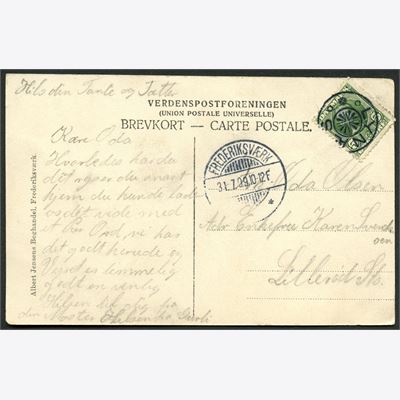 Hils din Tante og Fætter
VERDENSPOSTFORENINGEN
(UNION POSTALE UNIVERSELLE)
BREVKORT — CARTE POSTALE.
Kære Oda
Hvorledes har du
det rejser du snart
hjem du kunde lade
os det vide med
et Par Ord vi har
det godt herude og
Vejret er temmelig
godt en venlig
Hilsen til dig fra
din Moster Hilsen fra
FREDERIKSVÆRK
31.7.09.10-12F
Oda Olsen
Adr Enkefru Karen Svend
sen
Lillerød St.
Albert Jensens Boghandel, Frederiksværk.